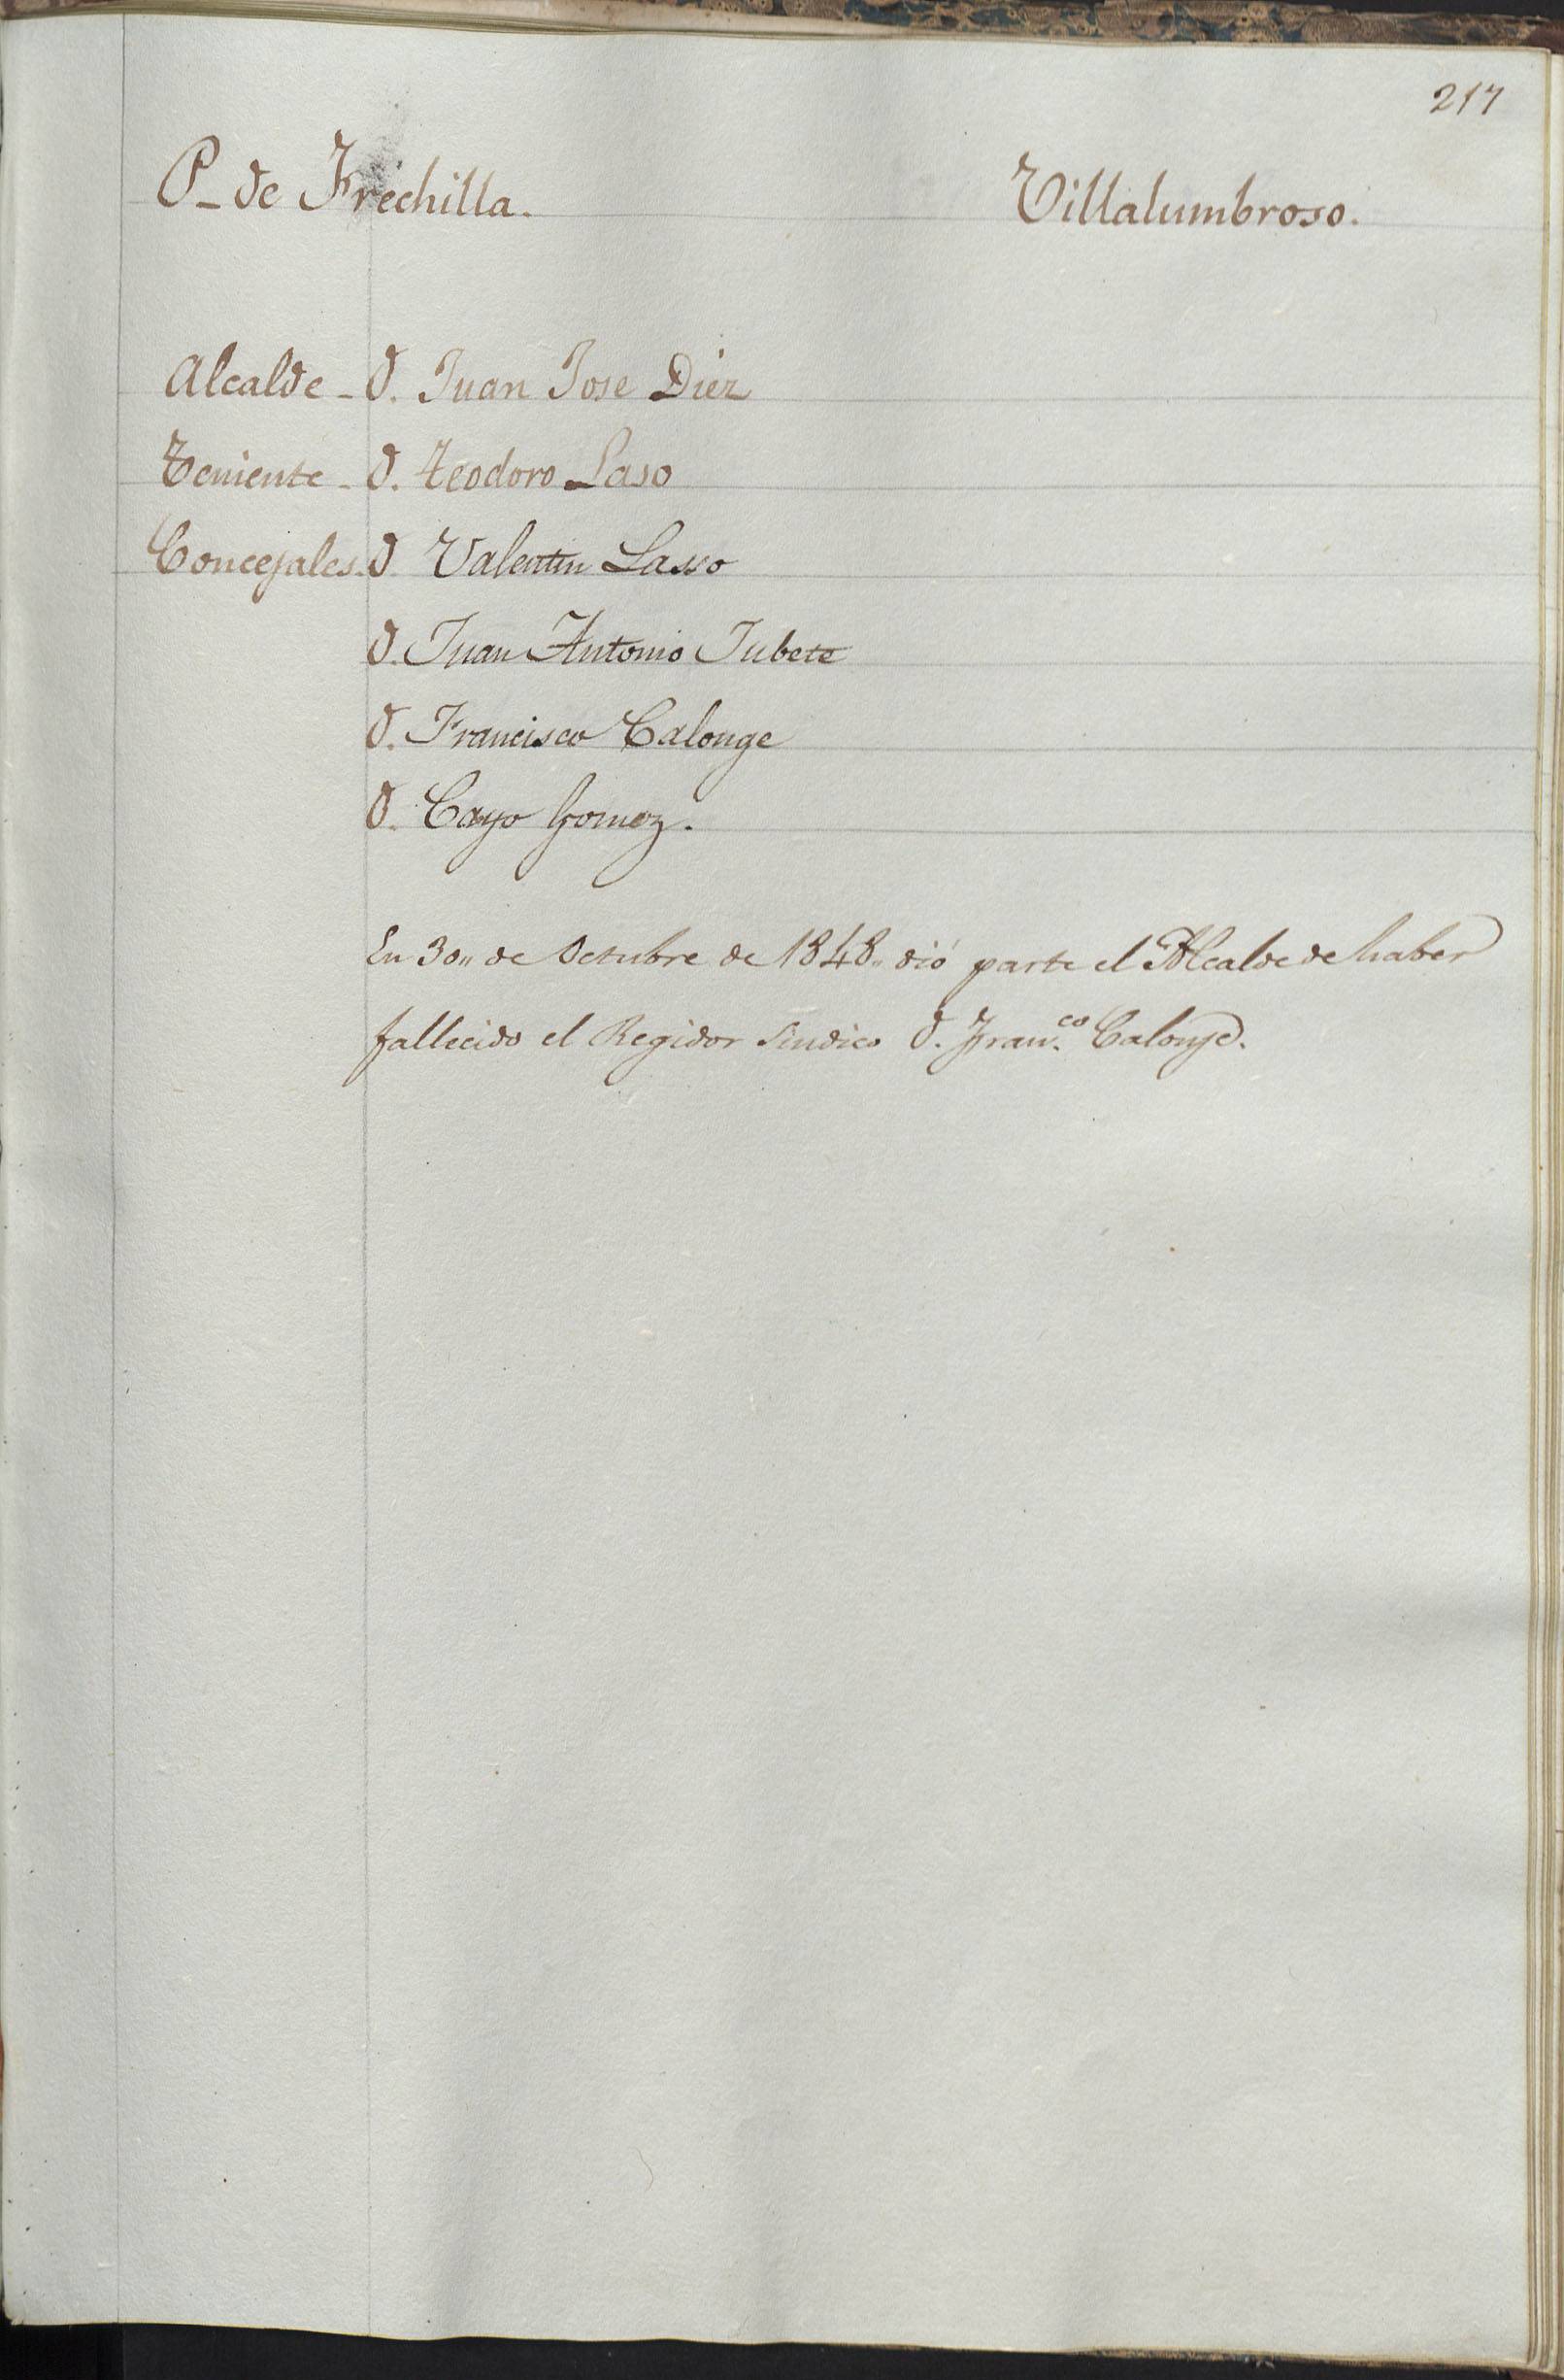 217
P_ de Frechilla. Villalumbroso.
Alcalde - D. Juan Jose Diez
Teniente - D. Teodoro Laso
Concejales. D Valentin Lasso
D. Juan Antonio Jubete
D. Francisco Calonge
D. Cayo Gomez.
En 30,, de Octubre de 1848,, dió parte el Alcalde de haber
fallecido el Regidor Sindico D. Fran.co Calonge.